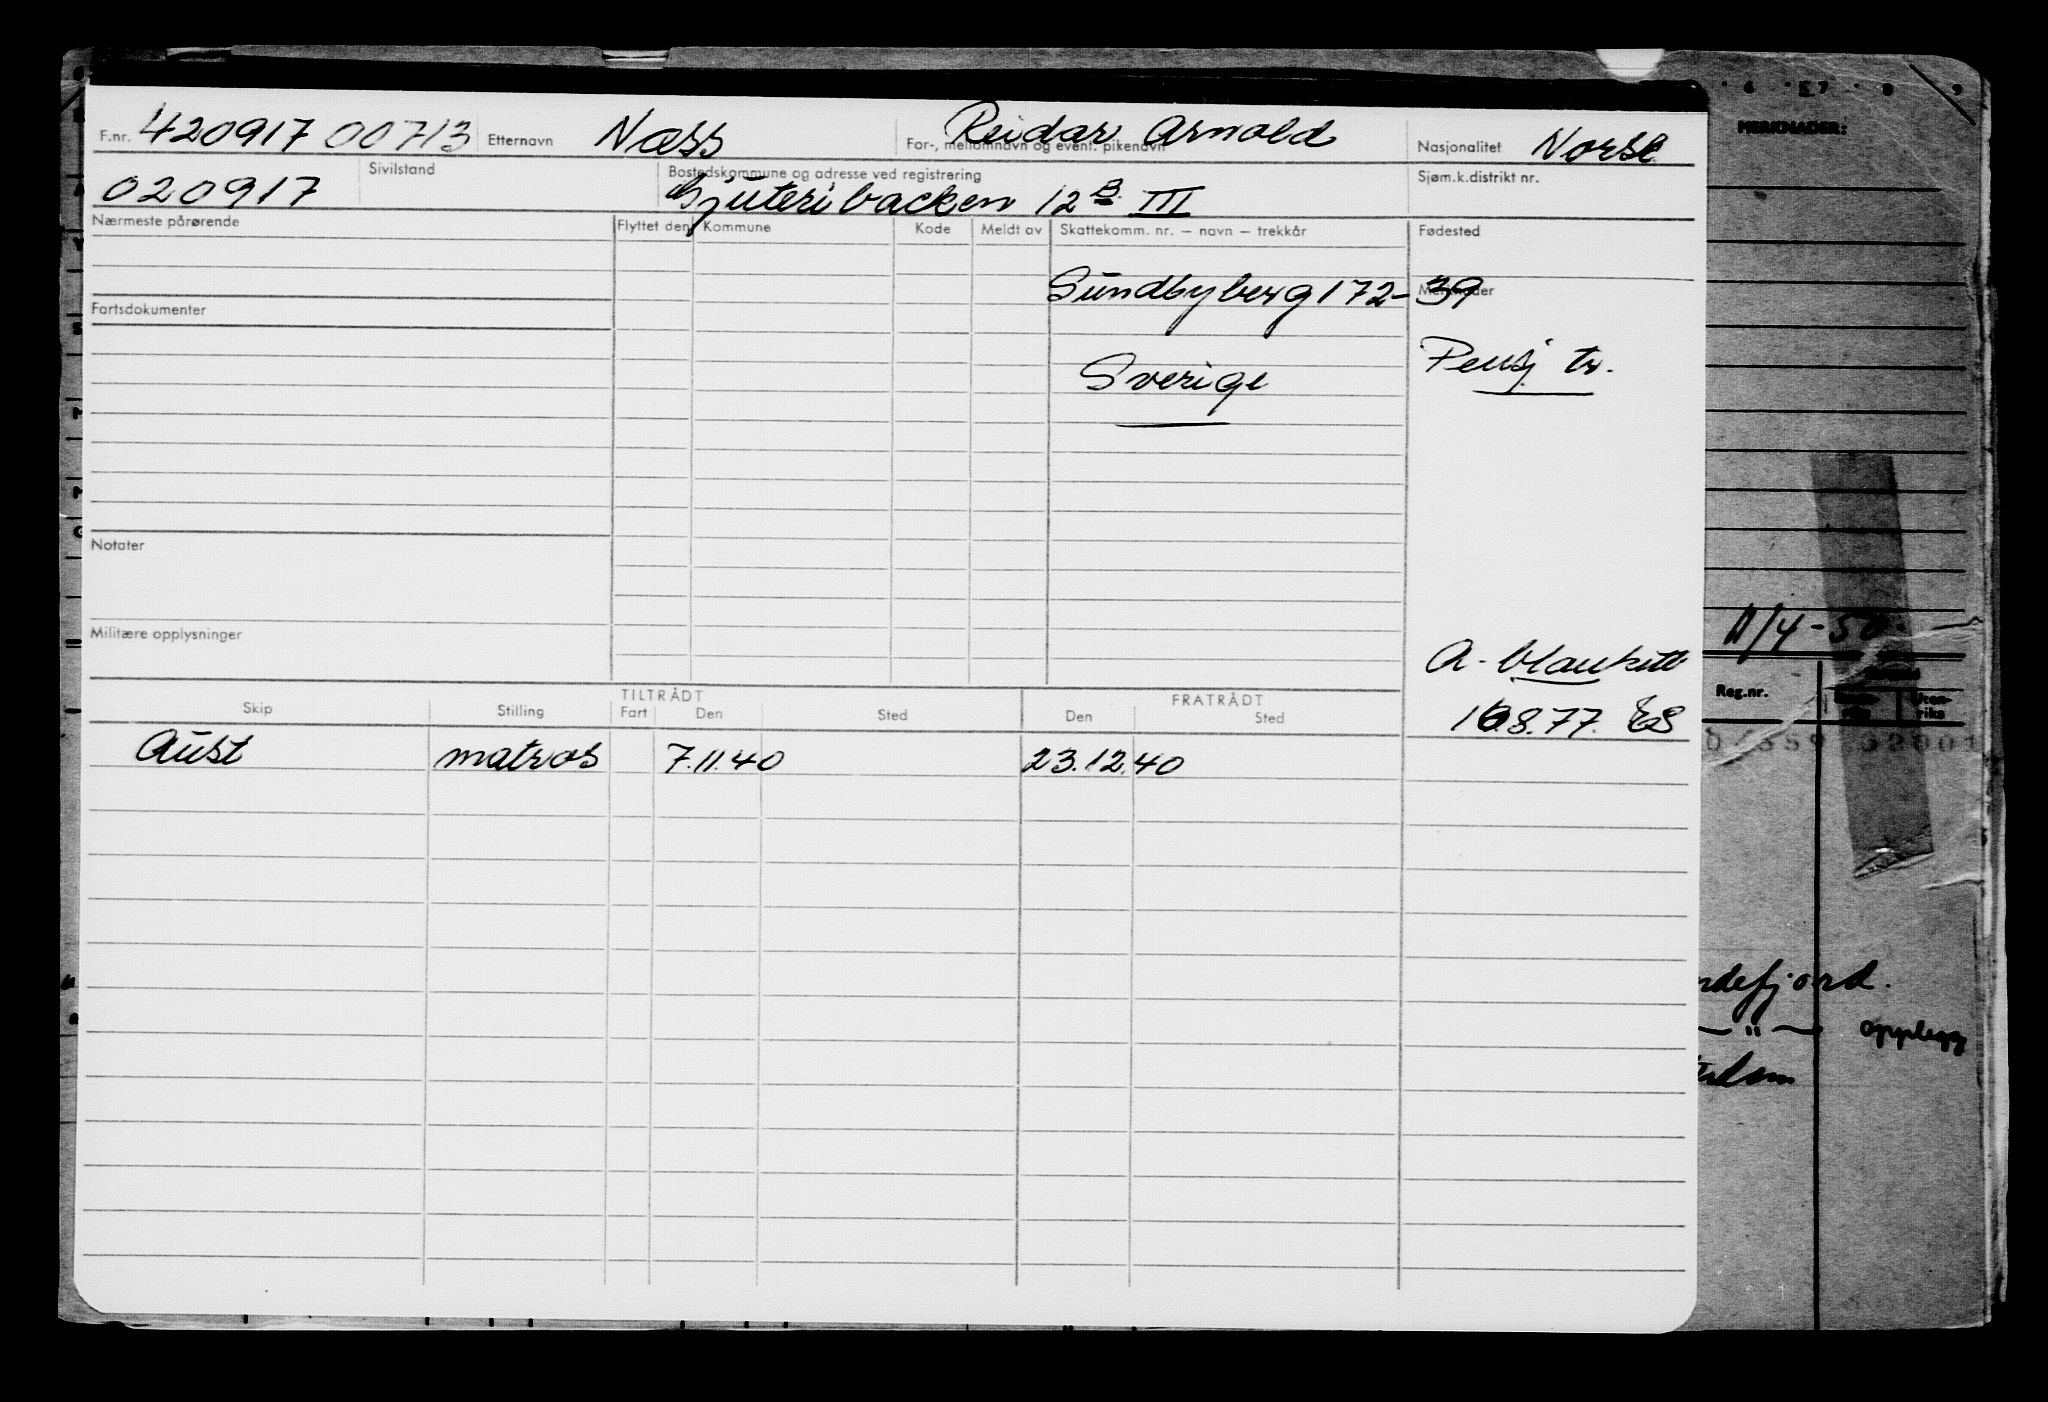 F.nr. 420917 00713 Etternavn Næss For-, mellomnavn og event. pikenavn Reidar Arnold Nasjonalitet Norsk
020917 Sivilstand Bostedskommune og adresse ved registrering Gjuteribacken 12 B III Sjøm.k.distrikt nr.
Nærmeste pårørende Flyttet den Kommune Kode Meldt av Skattekomm. nr. — navn — trekkår Fødested
Sundbyberg 172-39 Merknader
Fartsdokumenter
Sverige Pensj tr.
Notater
Militære opplysninger
A-blankett
16.8.77. ES
TILTRÅDT FRATRÅDT
Skip Stilling Fart Den Sted Den Sted
Aust matros 7.11.40 23.12.40
6 7 8 9
MERKNADER:
A/4-50
Reg.nr.
rdefjord.
— " — opplegg